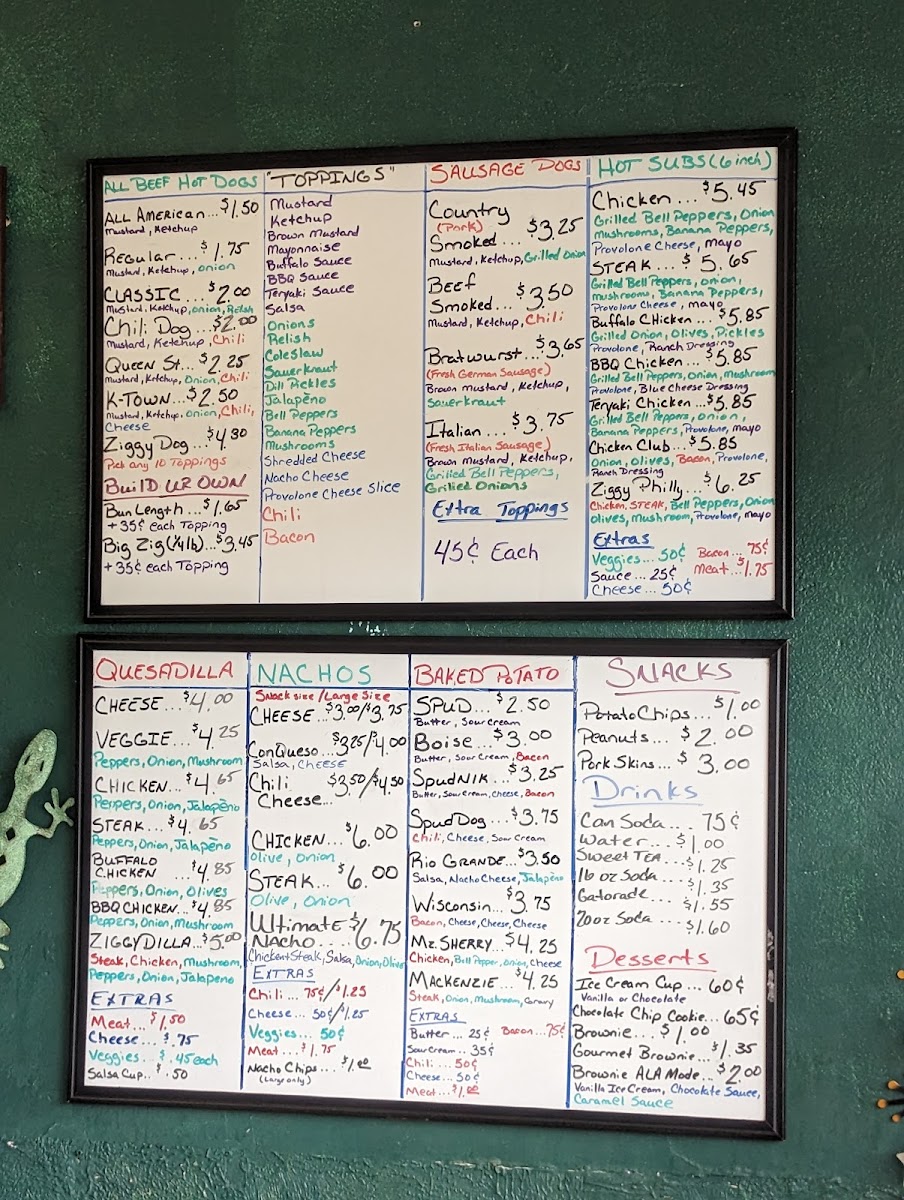 ALL BEEF HOT DOGS
ALL AMERICAN...$1.50
Mustard, Ketchup
Regular...$1.75
Mustard, Ketchup, onion
CLASSIC...$2.00
Mustard, Ketchup, onion, Relish
Chili Dog...$2.00
Mustard, Ketchup, Chili
Queen St...$2.25
Mustard, Ketchup, Onion, Chili
K-TOWN...$2.50
Mustard, Ketchup, onion, Chili,
Cheese
Ziggy Dog...$4.30
Pick any 10 Toppings
BuilD UR OWN
Bun Length...$1.65
+35¢ each Topping
Big Zig (1/4 lb)...$3.45
+35¢ each Topping
"TOPPINGS"
Mustard
Ketchup
Brown Mustard
Mayonnaise
Buffalo Sauce
BBQ Sauce
Teryaki Sauce
Salsa
Onions
Relish
Coleslaw
Sauerkraut
Dill Pickles
Jalapeño
Bell Peppers
Banana Peppers
Mushrooms
Shredded Cheese
Nacho Cheese
Provolone Cheese Slice
Chili
Bacon
SAUSAGE DOGS
Country
(Pork)
Smoked...$3.25
Mustard, Ketchup, Grilled Onion
Beef
Smoked...$3.50
Mustard, Ketchup, Chili
Bratwurst...$3.65
(Fresh German Sausage)
Brown mustard, Ketchup,
Sauerkraut
Italian...$3.75
(Fresh Italian Sausage)
Brown Mustard, Ketchup,
Grilled Bell Peppers,
Grilled Onions
Extra Toppings
45¢ Each
HOT SUBS (6 inch)
Chicken...$5.45
Grilled Bell Peppers, Onion
mushrooms, Banana Peppers,
Provolone Cheese, mayo
STEAK...$5.65
Grilled Bell Peppers, onion,
mushrooms, Banana Peppers,
Provolone Cheese, mayo
Buffalo Chicken...$5.85
Grilled Onion, Olives, Pickles
Provolone, Ranch Dressing
BBQ Chicken...$5.85
Grilled Bell Peppers, Onion, Mushroom
Provolone, Blue Cheese Dressing
Teryaki Chicken...$5.85
Grilled Bell Peppers, onion,
Banana Peppers, Provolone, mayo
Chicken Club...$5.85
Onion, Olives, Bacon, Provolone,
Ranch Dressing
Ziggy Philly...$6.25
Chicken, STEAK, Bell Peppers, Onion
Olives, mushroom, Provolone, mayo
Extras
Veggies...50¢
Sauce...25¢
Cheese...50¢
Bacon...75¢
Meat...$1.75
QUESADILLA
CHEESE...$4.00
VEGGIE...$4.25
Peppers, Onion, Mushroom
CHICKEN...$4.65
Peppers, Onion, Jalapeño
STEAK...$4.65
Peppers, Onion, Jalapeño
BUFFALO
CHICKEN $4.85
Peppers, Onion, Olives
BBQ CHICKEN...$4.85
Peppers, Onion, Mushroom
ZIGGYDILLA...$5.00
Steak, Chicken, Mushroom,
Peppers, Onion, Jalapeno
EXTRAS
Meat...$1.50
Cheese...$.75
Veggies...$.45 each
Salsa Cup..$.50
NACHOS
Snack size/Large Size
CHEESE...$3.00/$3.75
ConQueso...$3.25/$4.00
Salsa, CHEESE
Chili $3.50/$4.50
Cheese...
CHICKEN...$6.00
Olive, Onion
STEAK...$6.00
Olive, Onion
Ultimate $6.75
Nacho....
Chicken+Steak, Salsa, Onion, Olive
EXTRAS
Chili...75¢/$1.25
Cheese...50¢/$1.25
Veggies...50¢
Meat...$1.75
Nacho Chips...$1.00
(Large only)
BAKED POTATO
SPUD...$2.50
Butter, Sour Cream
Boise...$3.00
Butter, Sour Cream, Bacon
SpudNIK...$3.25
Butter, Sour Cream, Cheese, Bacon
Spud Dog...$3.75
Chili, Cheese, Sour Cream
Rio GRANDE...$3.50
Salsa, Nacho Cheese, Jalapeño
Wisconsin...$3.75
Bacon, Cheese, Cheese, Cheese
Mz. SHERRY...$4.25
Chicken, Bell Pepper, Onion, Cheese
MACKENZIE...$4.25
Steak, Onion, Mushroom, Gravy
EXTRAS
Butter...25¢ Bacon...75¢
Sour Cream..35¢
Chili...50¢
Cheese..50¢
Meat...$1.00
SNACKS
Potato Chips...$1.00
Peanuts...$2.00
Pork Skins...$3.00
Drinks
Can Soda...75¢
Water...$1.00
Sweet TEA...$1.25
16 oz Soda...$1.35
Gatorade...$1.55
20oz Soda...$1.60
Desserts
Ice Cream Cup...60¢
Vanilla or Chocolate
Chocolate Chip Cookie...65¢
Brownie...$1.00
Gourmet Brownie...$1.35
Brownie ALA Mode...$2.00
Vanilla Ice Cream, Chocolate Sauce,
Caramel Sauce